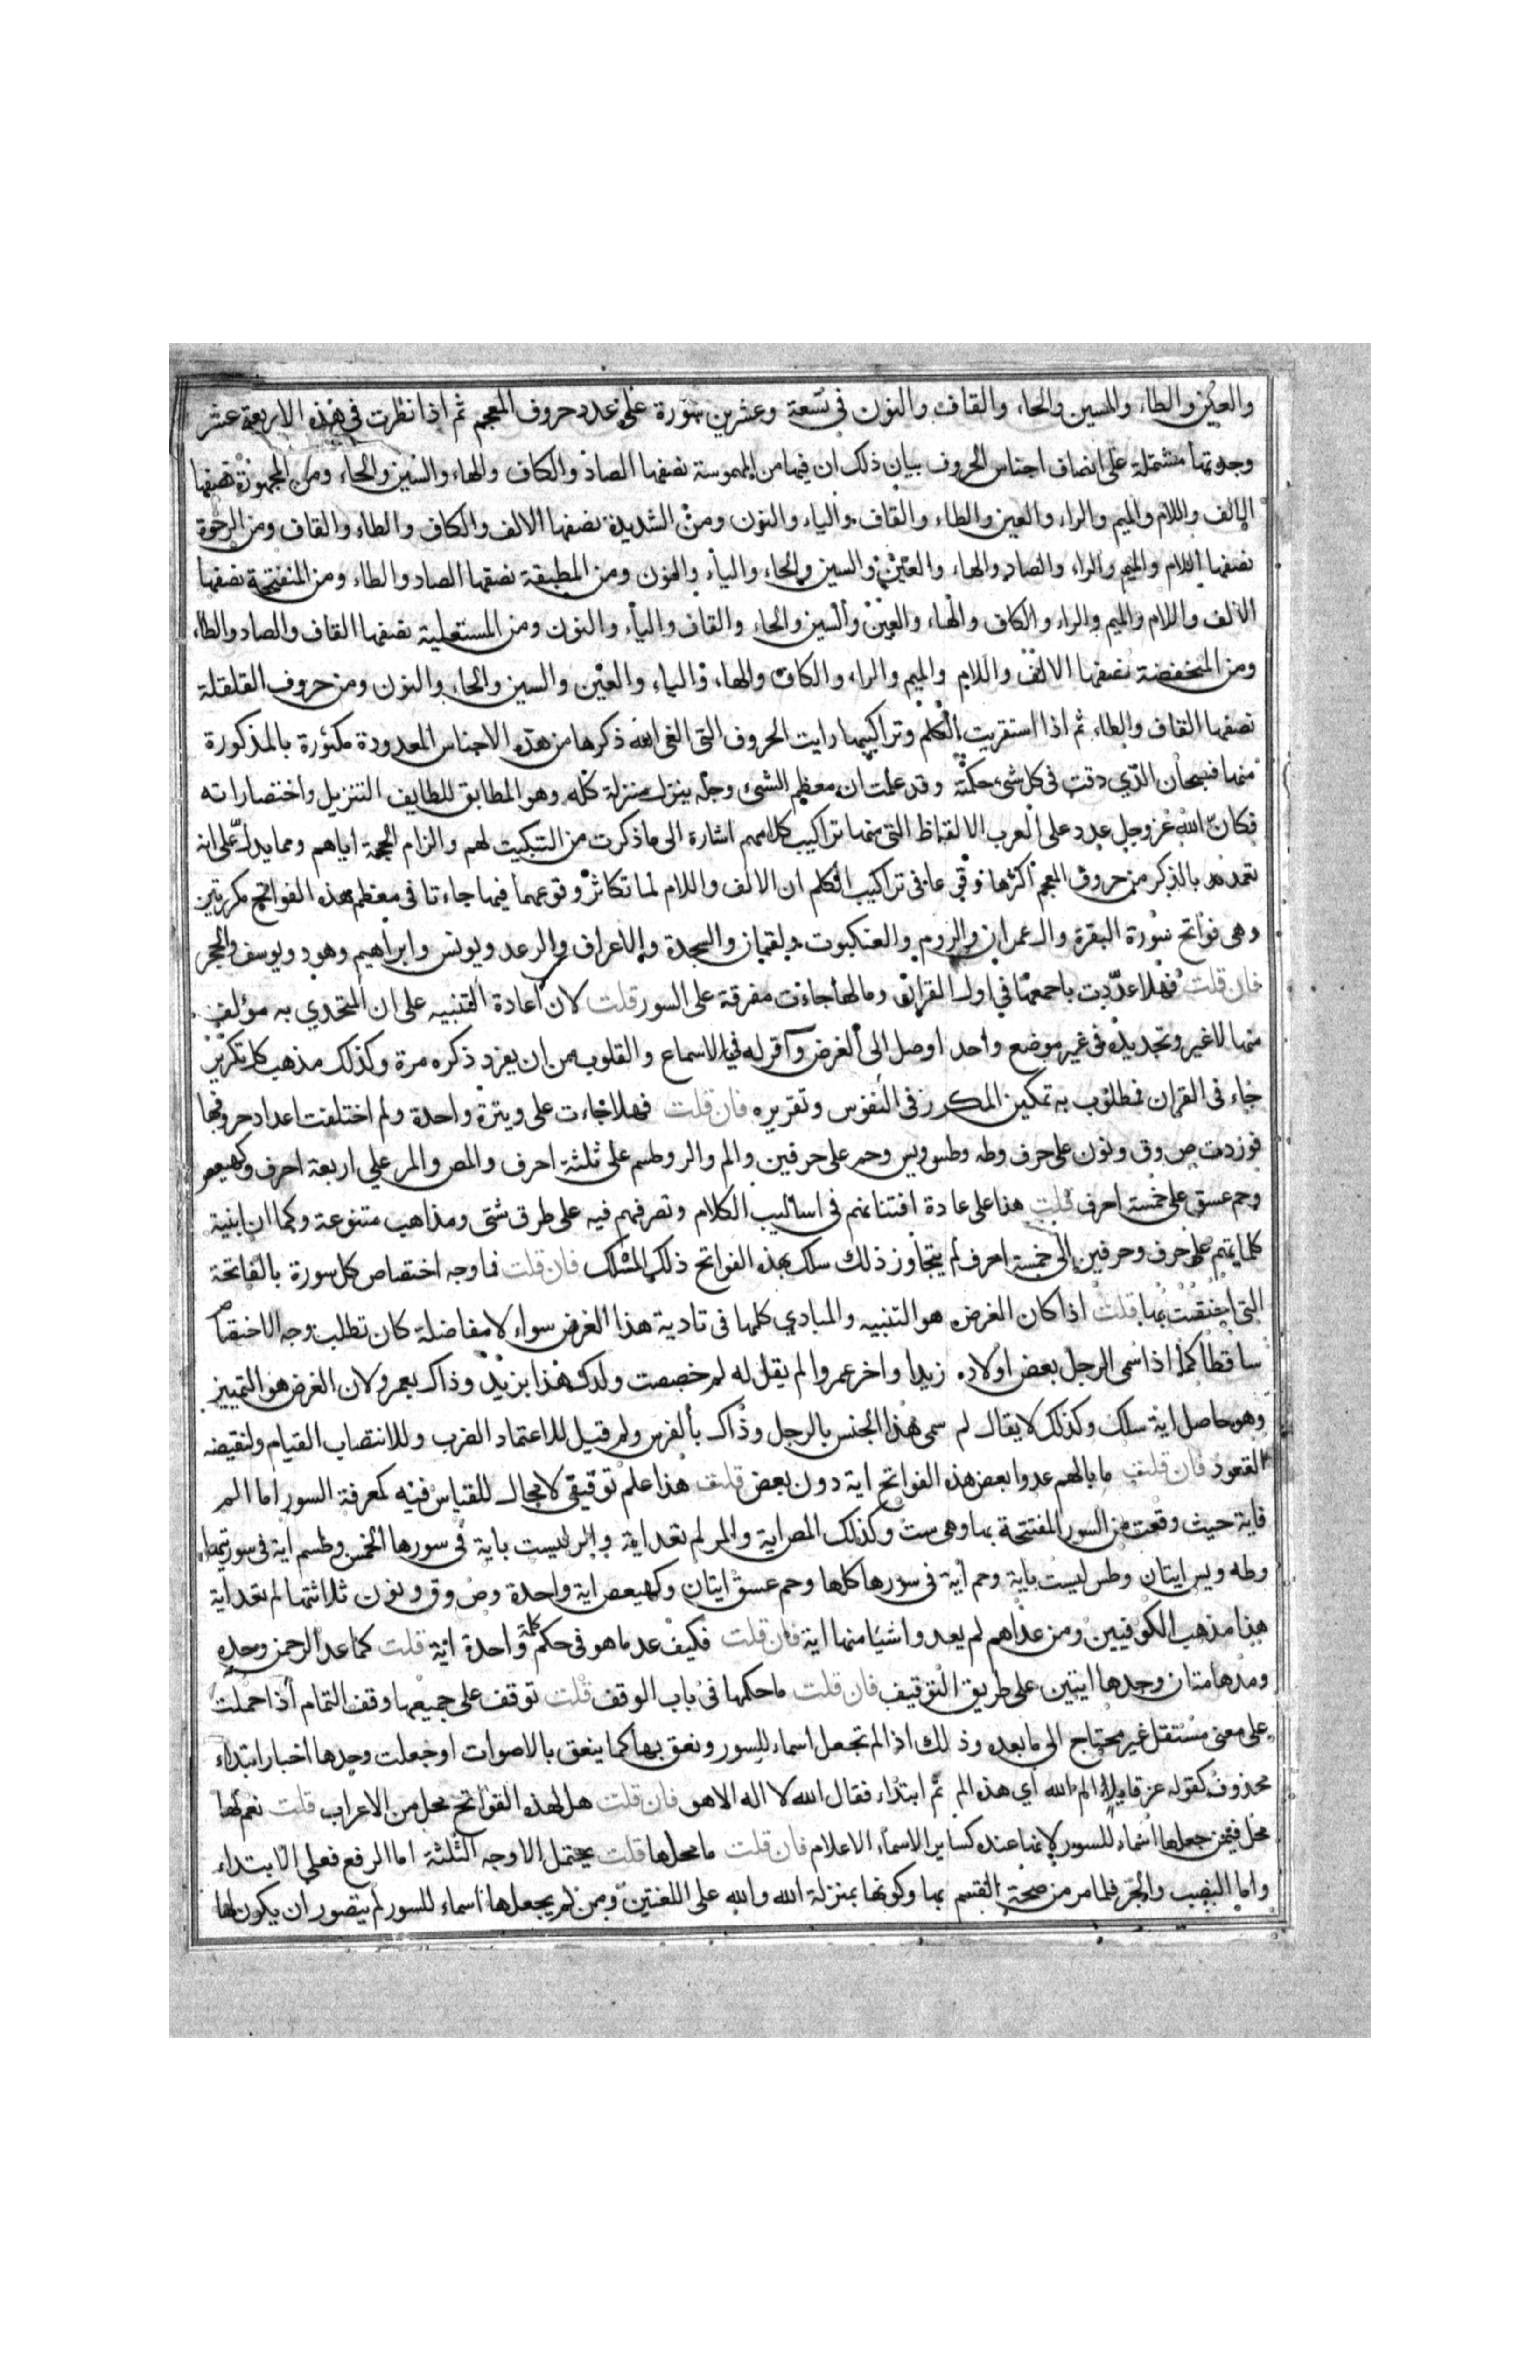 والعين والطاء والسين والحاء والقاف والنون في تسعة وعشرين سورة على عدد حروف المعجم ثم اذا نظرت في هذه الاربعة عشر
وجدتها مشتملة على انصاف اجناس الحروف بيان ذلك ان فيها من المهموسة نصفها الصاد والكاف والهاء والسين والحاء ومن المجهورة نصفها
الالف واللام والميم والراء والعين والطاء والقاف والياء والنون ومن الشديدة نصفها الالف والكاف والطاء والقاف ومن الرخوة
نصفها اللام والميم والراء والصاد والهاء والعين والسين والحاء والياء والنون ومن المطبقة نصفها الصاد والطاء ومن المنفتحة نصفها
الالف واللام والميم والراء والكاف والهاء والعين والسين والحاء والقاف والياء والنون ومن المستعلية نصفها القاف والصاد والطاء
ومن المنخفضة نصفها الالف واللام والميم والراء والكاف والهاء والياء والعين والسين والحاء والنون ومن حروف القلقلة
نصفها القاف والطاء ثم اذا استقريت الكلم وتراكيبها رايت الحروف التي الغى الله ذكرها من هذه الاجناس المعدودة مكثورة بالمذكورة
منها فسبحان الذي دقت في كل شئ حكمته وقد علمت ان معظم الشئ وجله ينزل منزلة كله وهو المطابق للطايف التنزيل واختصاراته
فكان الله عز وجل عدد على العرب الالفاظ التي منها تراكيب كلامهم اشارة الى ما ذكرت من التبكيت لهم والزام الحجة اياهم ومما يدل على انه
تعمد بالذكر من حروف المعجم اكثرها وقوعا في تراكيب الكلم ان الالف واللام لما تكاثر وقوعهما فيها جاءتا في معظم هذه الفواتح مكررتين
وهي فواتح سورة البقرة وال عمران والروم والعنكبوت ولقمان والسجدة والاعراف والرعد ويونس وابراهيم وهود ويوسف والحجر
فان قلت فهلا عددت باجمعها في اول القران وما لها جاءت مفرقة على السور قلت لان اعادة التنبيه على ان المتحدي به مؤلف
منها لا غير وتجديده في غير موضع واحد اوصل الى الغرض واقر له في الاسماع والقلوب من ان يفرد ذكره مرة وكذلك مذهب كل تكرير
جاء في القران فمطلوب به تمكين المكرر في النفوس وتقريره فان قلت فهلا جاءت على وتيرة واحدة ولم اختلفت اعداد حروفها
فوردت ص وق ونون على حرف وطه وطس ويس وحم على حرفين والم والر وطسم على ثلثة احرف والمص والمر على اربعة احرف وكهيعص
وحم عسق على خمسة احرف قلت هذا على عادة افتنانهم في اساليب الكلام وتصرفهم فيه على طرق شتى ومذاهب متنوعة وكما ان ابنية
كلماتهم على حرف وحرفين الى خمسة احرف لم يتجاوز ذلك سلك بهذه الفواتح ذلك المسلك فان قلت فما وجه اختصاص كل سورة بالفاتحة
التي اختصت بها قلت اذا كان الغرض هو التنبيه والمبادي كلها في تادية هذا الغرض سواء لا مفاضلة كان تطلب وجه الاختصاص
ساقطا كما اذا سمى الرجل بعض اولاده زيدا واخر عمروا لم يقل له لم خصصت ولدك هذا بزيد وذاك بعمرو لان الغرض هو التمييز
وهو حاصل اية سلك وكذلك لا يقال لم سمي هذا الجنس بالرجل وذاك بالفرس ولم قيل للاعتماد الضرب وللانتصاب القيام ولنقيضه
القعود فان قلت ما بالهم عدوا بعض هذه الفواتح اية دون بعض قلت هذا علم توقيفي لا مجال للقياس فيه كمعرفة السور اما الم
فاية حيث وقعت من السور المفتتحة بها وهي ست وكذلك المص اية والمر لم تعد اية والر ليست باية في سورها الخمس وطسم اية في سورتيها
وطه ويس ايتان وطس ليست باية وحم اية في سورها كلها وحم عسق ايتان وكهيعص اية واحدة وص وق ونون ثلاثتها لم تعد اية
هذا مذهب الكوفيين ومن عداهم لم يعدوا شيا منها اية فان قلت فكيف عد ما هو في حكم كلمة واحدة اية قلت كما عد الرحمن وحده
ومدهامتان وحدها ايتين على طريق التوقيف فان قلت ما حكمها في باب الوقف قلت توقف على جميعها وقف التمام اذا حملت
على معنى مستقل غير محتاج الى ما بعده وذلك اذا لم تجعل اسماء للسور ونعق بها كما ينعق بالاصوات او جعلت وحدها اخبار ابتداء
محذوف كقوله عز قايلا الم الله اي هذه الم ثم ابتداء فقال الله لا اله الا هو فان قلت هل لهذه الفواتح محل من الاعراب قلت نعم لها
محل فيمن جعلها اسماء للسور لانها عنده كساير الاسماء الاعلام فان قلت ما محلها قلت يحتمل الاوجه الثلثة اما الرفع فعلى الابتداء
واما النصب والجر فلما مر من صحة القسم بها وكونها بمنزلة الله والله على اللغتين ومن لم يجعلها اسماء للسور لم يتصور ان يكون لها